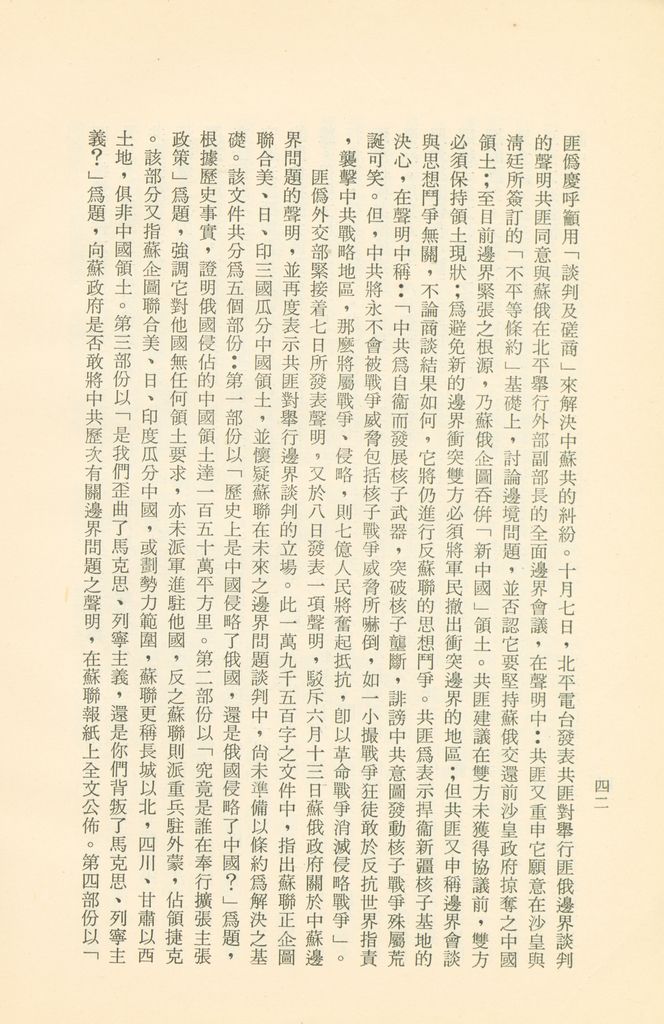 匪僞慶呼籲用「談判及磋商」來解決中蘇共的糾紛。十月七日，北平電台發表共匪對舉行匪俄邊界談判
的聲明共匪同意與蘇俄在北平舉行外部副部長的全面邊界會議，在聲明中：共匪又重申它願意在沙皇與
淸廷所簽訂的「不平等條約」基礎上，討論邊境問題，並否認它要堅持蘇俄交還前沙皇政府掠奪之中國
領土；至目前邊界緊張之根源，乃蘇俄企圖吞併「新中國」領土。共匪建議在雙方未獲得協議前，雙方
必須保持領土現狀；爲避免新的邊界衝突雙方必須將軍民撤出衝突邊界的地區；但共匪又申稱邊界會談
與思想鬥爭無關，不論商談結果如何，它將仍進行反蘇聯的思想鬥爭。共匪爲表示捍衞新疆核子基地的
決心，在聲明中稱：「中共爲自衞而發展核子武器，突破核子壟斷，誹謗中共意圖發動核子戰爭殊屬荒
誕可笑。但，中共將永不會被戰爭威脅包括核子戰爭威脅所嚇倒，如一小撮戰爭狂徒敢於反抗世界指責
，襲擊中共戰略地區，那麼將屬戰爭、侵略，則七億人民將奮起抵抗，卽以革命戰爭消滅侵略戰爭」。
匪僞外交部緊接着七日所發表聲明，又於八日發表一項聲明，駁斥六月十三日蘇俄政府關於中蘇邊
界問題的聲明，並再度表示共匪對舉行邊界談判的立場。此一萬九千五百字之文件中，指出蘇聯正企圖
聯合美、日、印三國瓜分中國領土，並懷疑蘇聯在未來之邊界問題談判中，尙未準備以條約爲解決之基
礎。該文件共分爲五個部份：第一部份以「歷史上是中國侵略了俄國，還是俄國侵略了中國？」爲題，
根據歷史事實，證明俄國侵佔的中國領土達一百五十萬平方里。第二部份以「究竟是誰在奉行擴張主張
政策」爲題，強調它對他國無任何領土要求，亦未派軍進駐他國，反之蘇聯則派重兵駐外蒙，佔領捷克
。該部分又指蘇企圖聯合美、日、印度瓜分中國，或劃勢力範圍，蘇聯更稱長城以北，四川、甘肅以西
土地，俱非中國領土。第三部份以「是我們歪曲了馬克思、列寧主義，還是你們背叛了馬克思、列寧主
義？」爲題，向蘇政府是否敢將中共歷次有關邊界問題之聲明，在蘇聯報紙上全文公佈。第四部份以「
四二